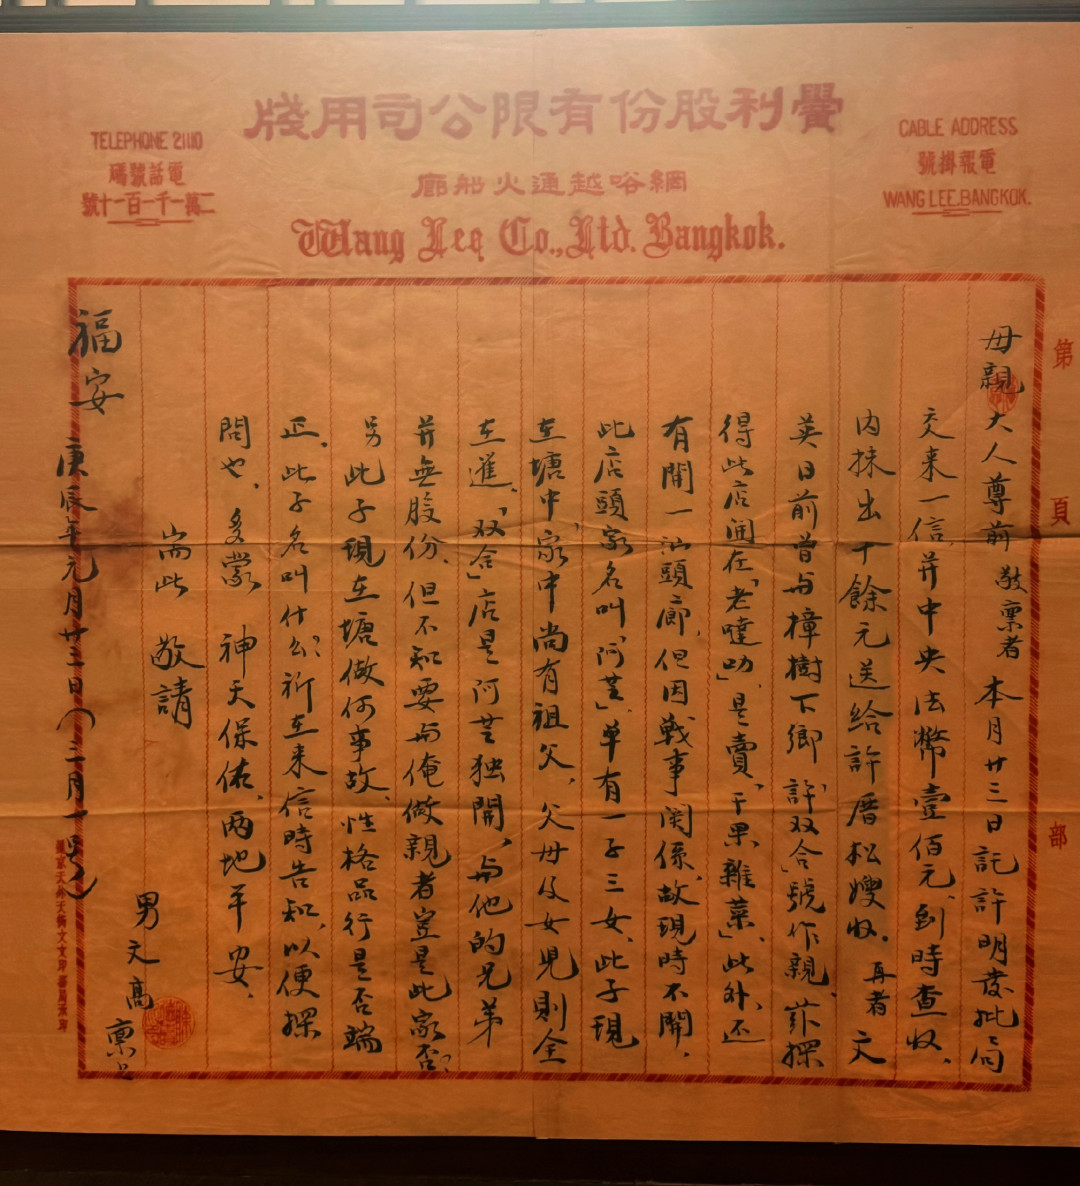 黌利股份有限公司用牋
TELEPHONE 21110
電話號碼
二萬一千一百一十號
CABLE ADDRESS
電報掛號
WANG LEE.BANGKOK.
網峪越通火船廊
Wang Lee Co., Ltd. Bangkok.
第 頁 部
母親大人尊前 敬禀者 本月廿三日託許明發批局
交来一信,并中央法幣壹佰元,到時查收、
内抹出十餘元送給許厝松嫂收. 再者 文
英日前曽与樟樹下鄉「許双合」號作親、茲探
得此店開在「老噠叻」、是賣「干果雜菜」、此外、还
有開一汕頭廊,但因戰事関係、故現時不開,
此店頭家名叫「阿芝」、单有一子三女、此子現
在塘中、家中尚有祖父、父母及女児則全
在暹、「双合」店是阿芝独開、与他的兄弟
并無股份、但不知要与俺做親者豈是此家否?
另此子現在塘做何事故、性格品行是否端
正、此子名叫什么?祈在来信時告知,以便探
問也、多蒙 神天保佑、兩地平安、
耑此 敬請
福安 庚辰年元月廿三日(三月一号)
男文高 禀